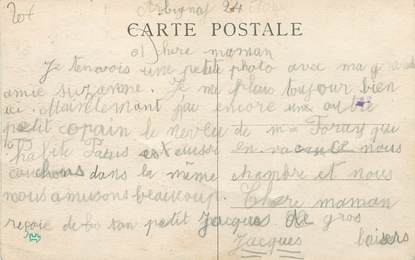 Arbignas 24
CARTE POSTALE
Chere maman
Je tenvois une petite photo avec ma g
amie suzanne. Je me plais toujour bien
ici. Maintenant jai encore un autre
petit copain le neveu de m qui
habite Paris et aussi en vacance nous
couchons dans la même chambre et nous
nous amusons beaucoup. Chere maman
reçoie de ton petit Jacques de gros
Jacques baisers